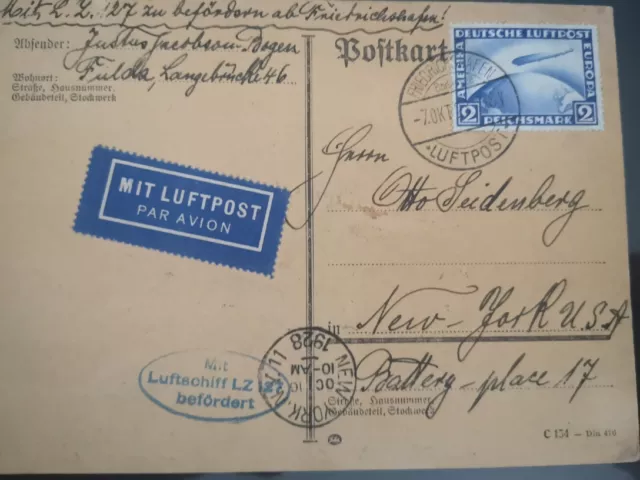 Mit L. Z. 127 zu befördern ab Friedrichshafen!
Absender: Justus Jacobson-Bogen
Wohnort: Fulda, Langebrücke 46
Straße, Hausnummer,
Gebäudeteil, Stockwerk
Postkart
DEUTSCHE LUFTPOST
AMERIKA
EUROPA
2 REICHSMARK 2
FRIEDRICHSHAFEN
-7.OKT
LUFTPOST
MIT LUFTPOST
PAR AVION
Herrn
Otto Seidenberg
in New-York USA
Battery-place 17
Straße, Hausnummer,
Gebäudeteil, Stockwerk
Mit
Luftschiff LZ 127
befördert
NEW YORK N.Y. 11
OCT
10-AM
1928
C 154 – Din 476